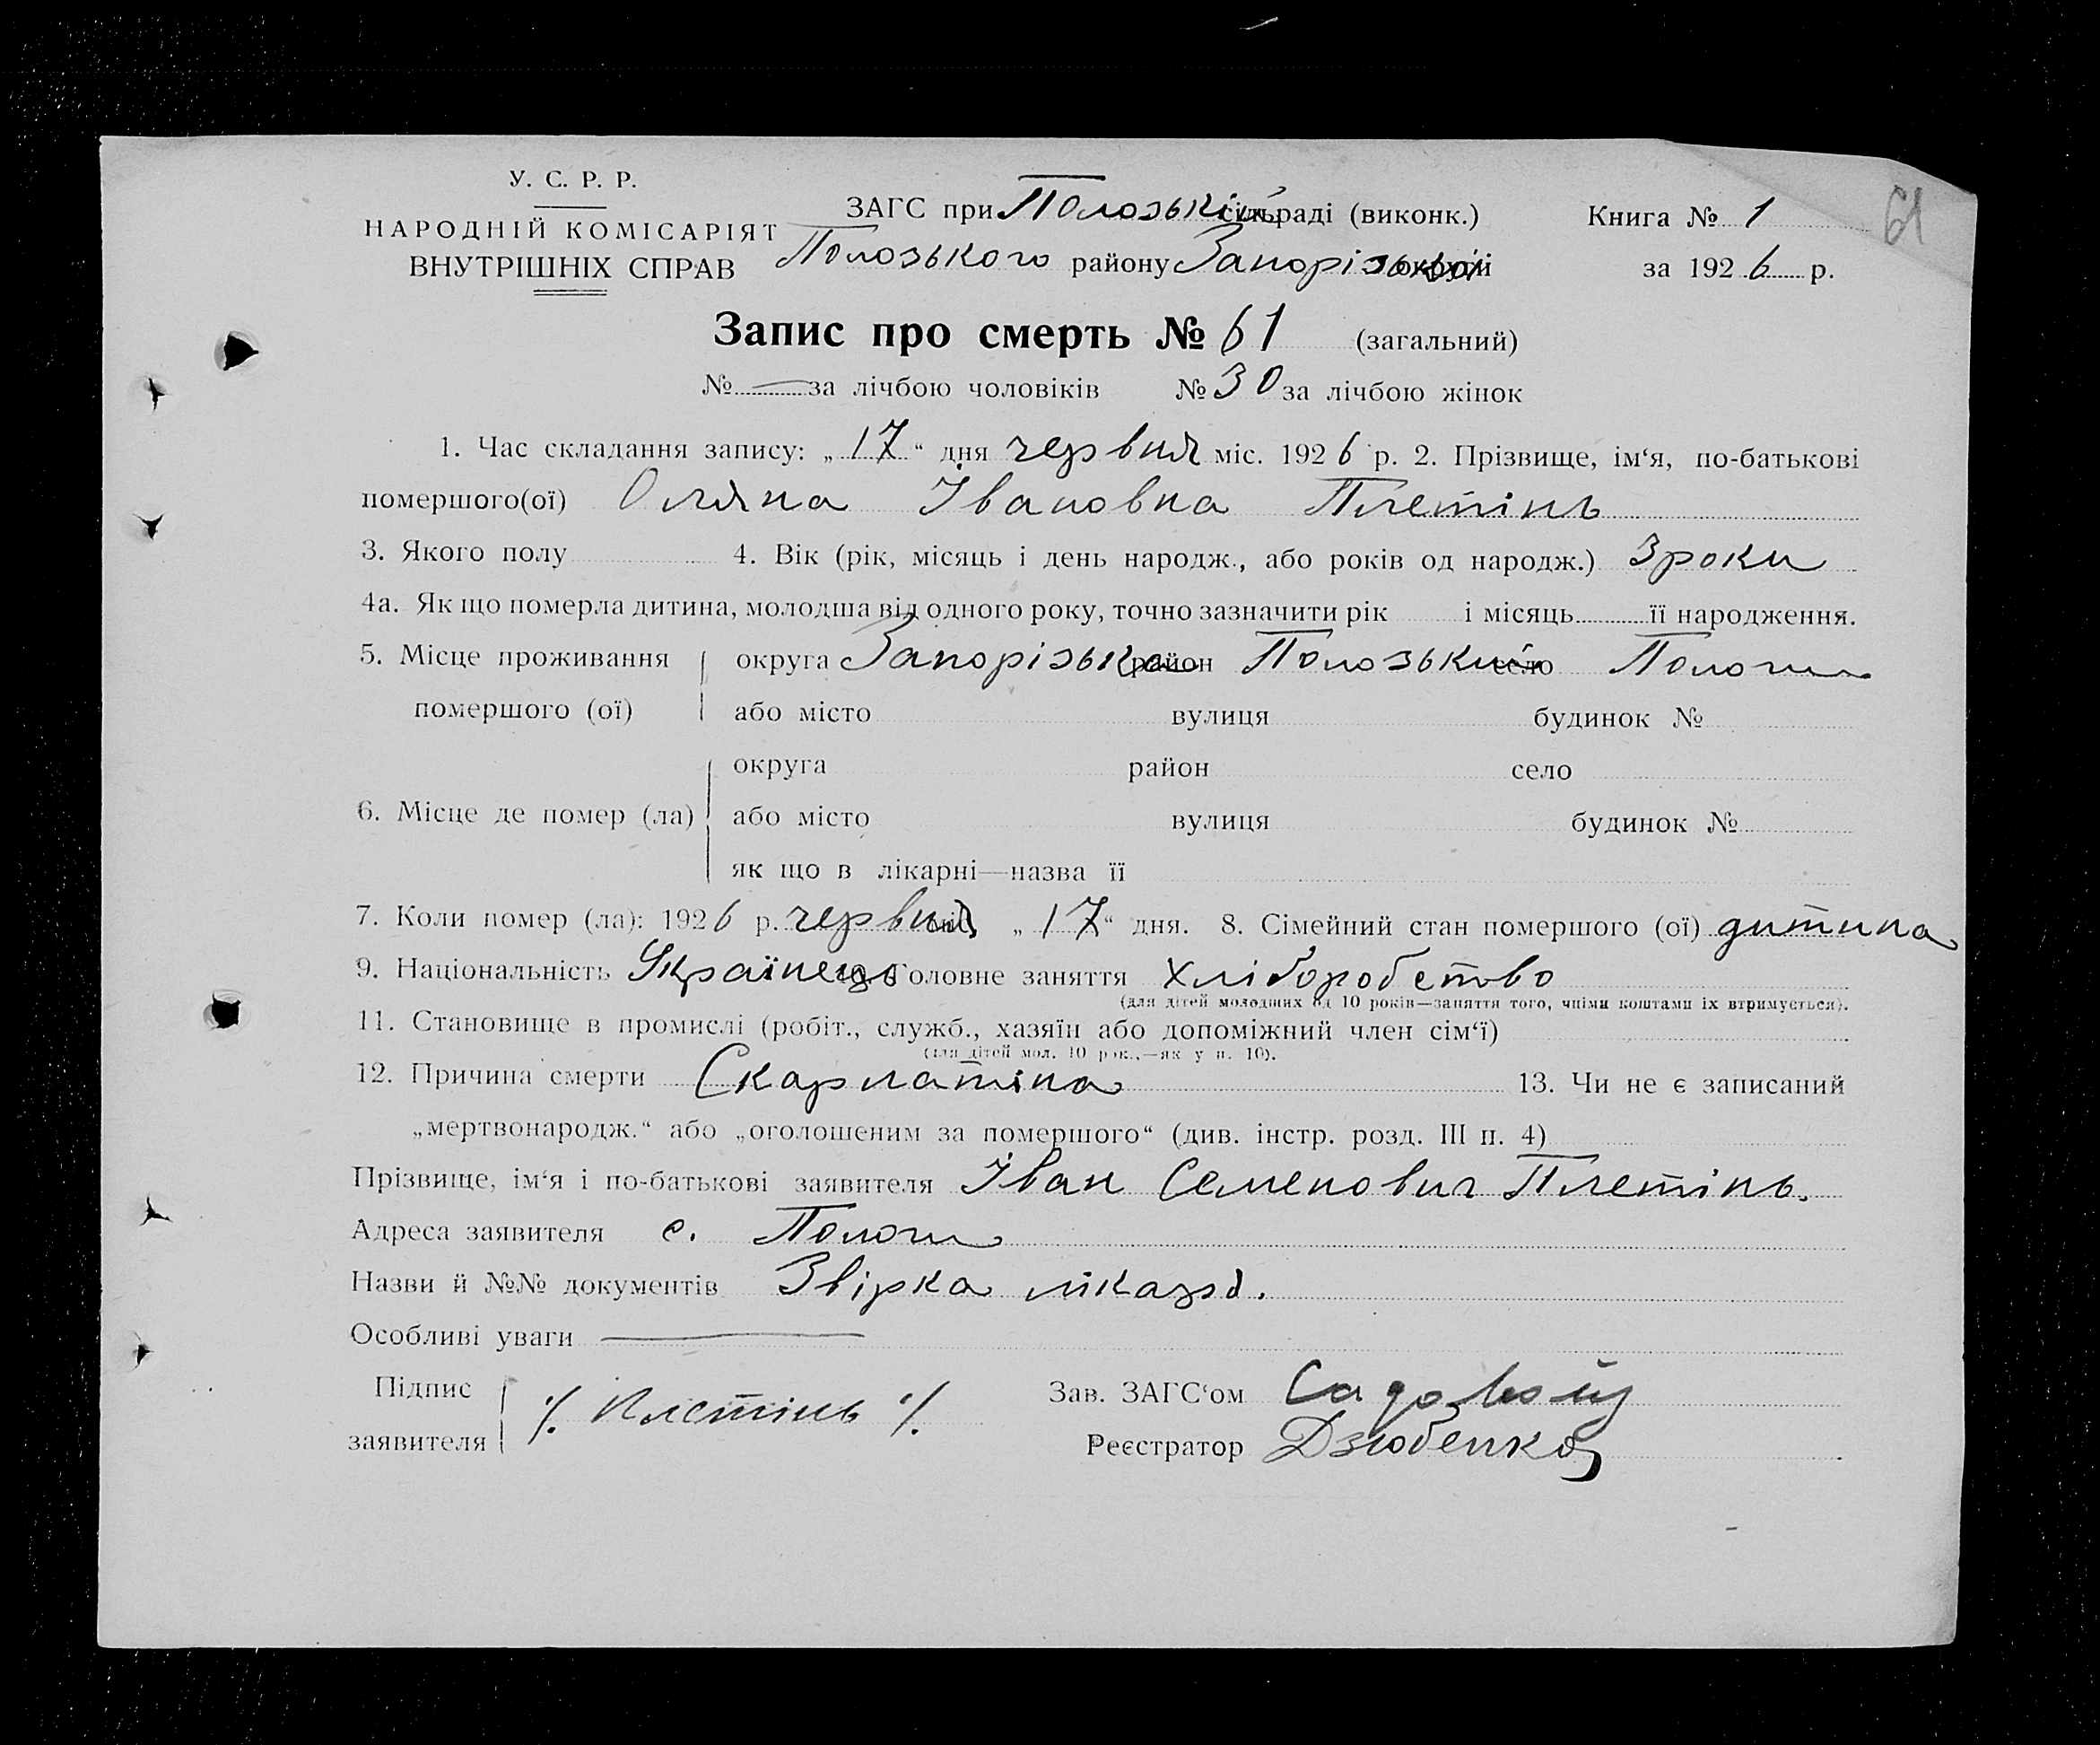 У. С. Р. Р.
НАРОДНІЙ КОМІСАРІЯТ
ВНУТРІШНІХ СПРАВ
ЗАГС при Полозькій сільраді (виконк.)
Полозького району Запорізької округи
Книга № 1
61
за 1926 р.
Запис про смерть № 61 (загальний)
№ — за лічбою чоловіків № 30 за лічбою жінок
1. Час складання запису: „17“ дня червня міс. 1926 р. 2. Прізвище, ім‘я, по-батькові
помершого(ої) Оляна Івановна Плетінь
3. Якого полу 4. Вік (рік, місяць і день народж., або років од народж.) 3 роки
4а. Як що померла дитина, молодша від одного року, точно зазначити рік і місяць її народження.
5. Місце проживання помершого (ої) округа Запорізька район Полозький село Пологи
або місто вулиця будинок №
6. Місце де помер (ла) округа район село
або місто вулиця будинок №
як що в лікарні—назва її
7. Коли помер (ла): 1926 р. червня „17“ дня. 8. Сімейний стан помершого (ої) дитина
9. Національність Українець 10. Головне заняття хліборобство
(для дітей молодших од 10 років—заняття того, чиїми коштами їх втримується).
11. Становище в промислі (робіт., служб., хазяїн або допоміжний член сім‘ї)
(для дітей мол. 10 рок.,—як у п. 10).
12. Причина смерти Скарлатіна 13. Чи не є записаний
„мертвонародж.“ або „оголошеним за помершого“ (див. інстр. розд. III п. 4)
Прізвище, ім‘я і по-батькові заявителя Іван Семенович Плетінь.
Адреса заявителя с. Пологи
Назви й №№ документів Звірка лікаря.
Особливі уваги —
Підпис заявителя ·/. Плетінь ·/.
Зав. ЗАГС‘ом Садовый
Реєстратор Дзюбенко